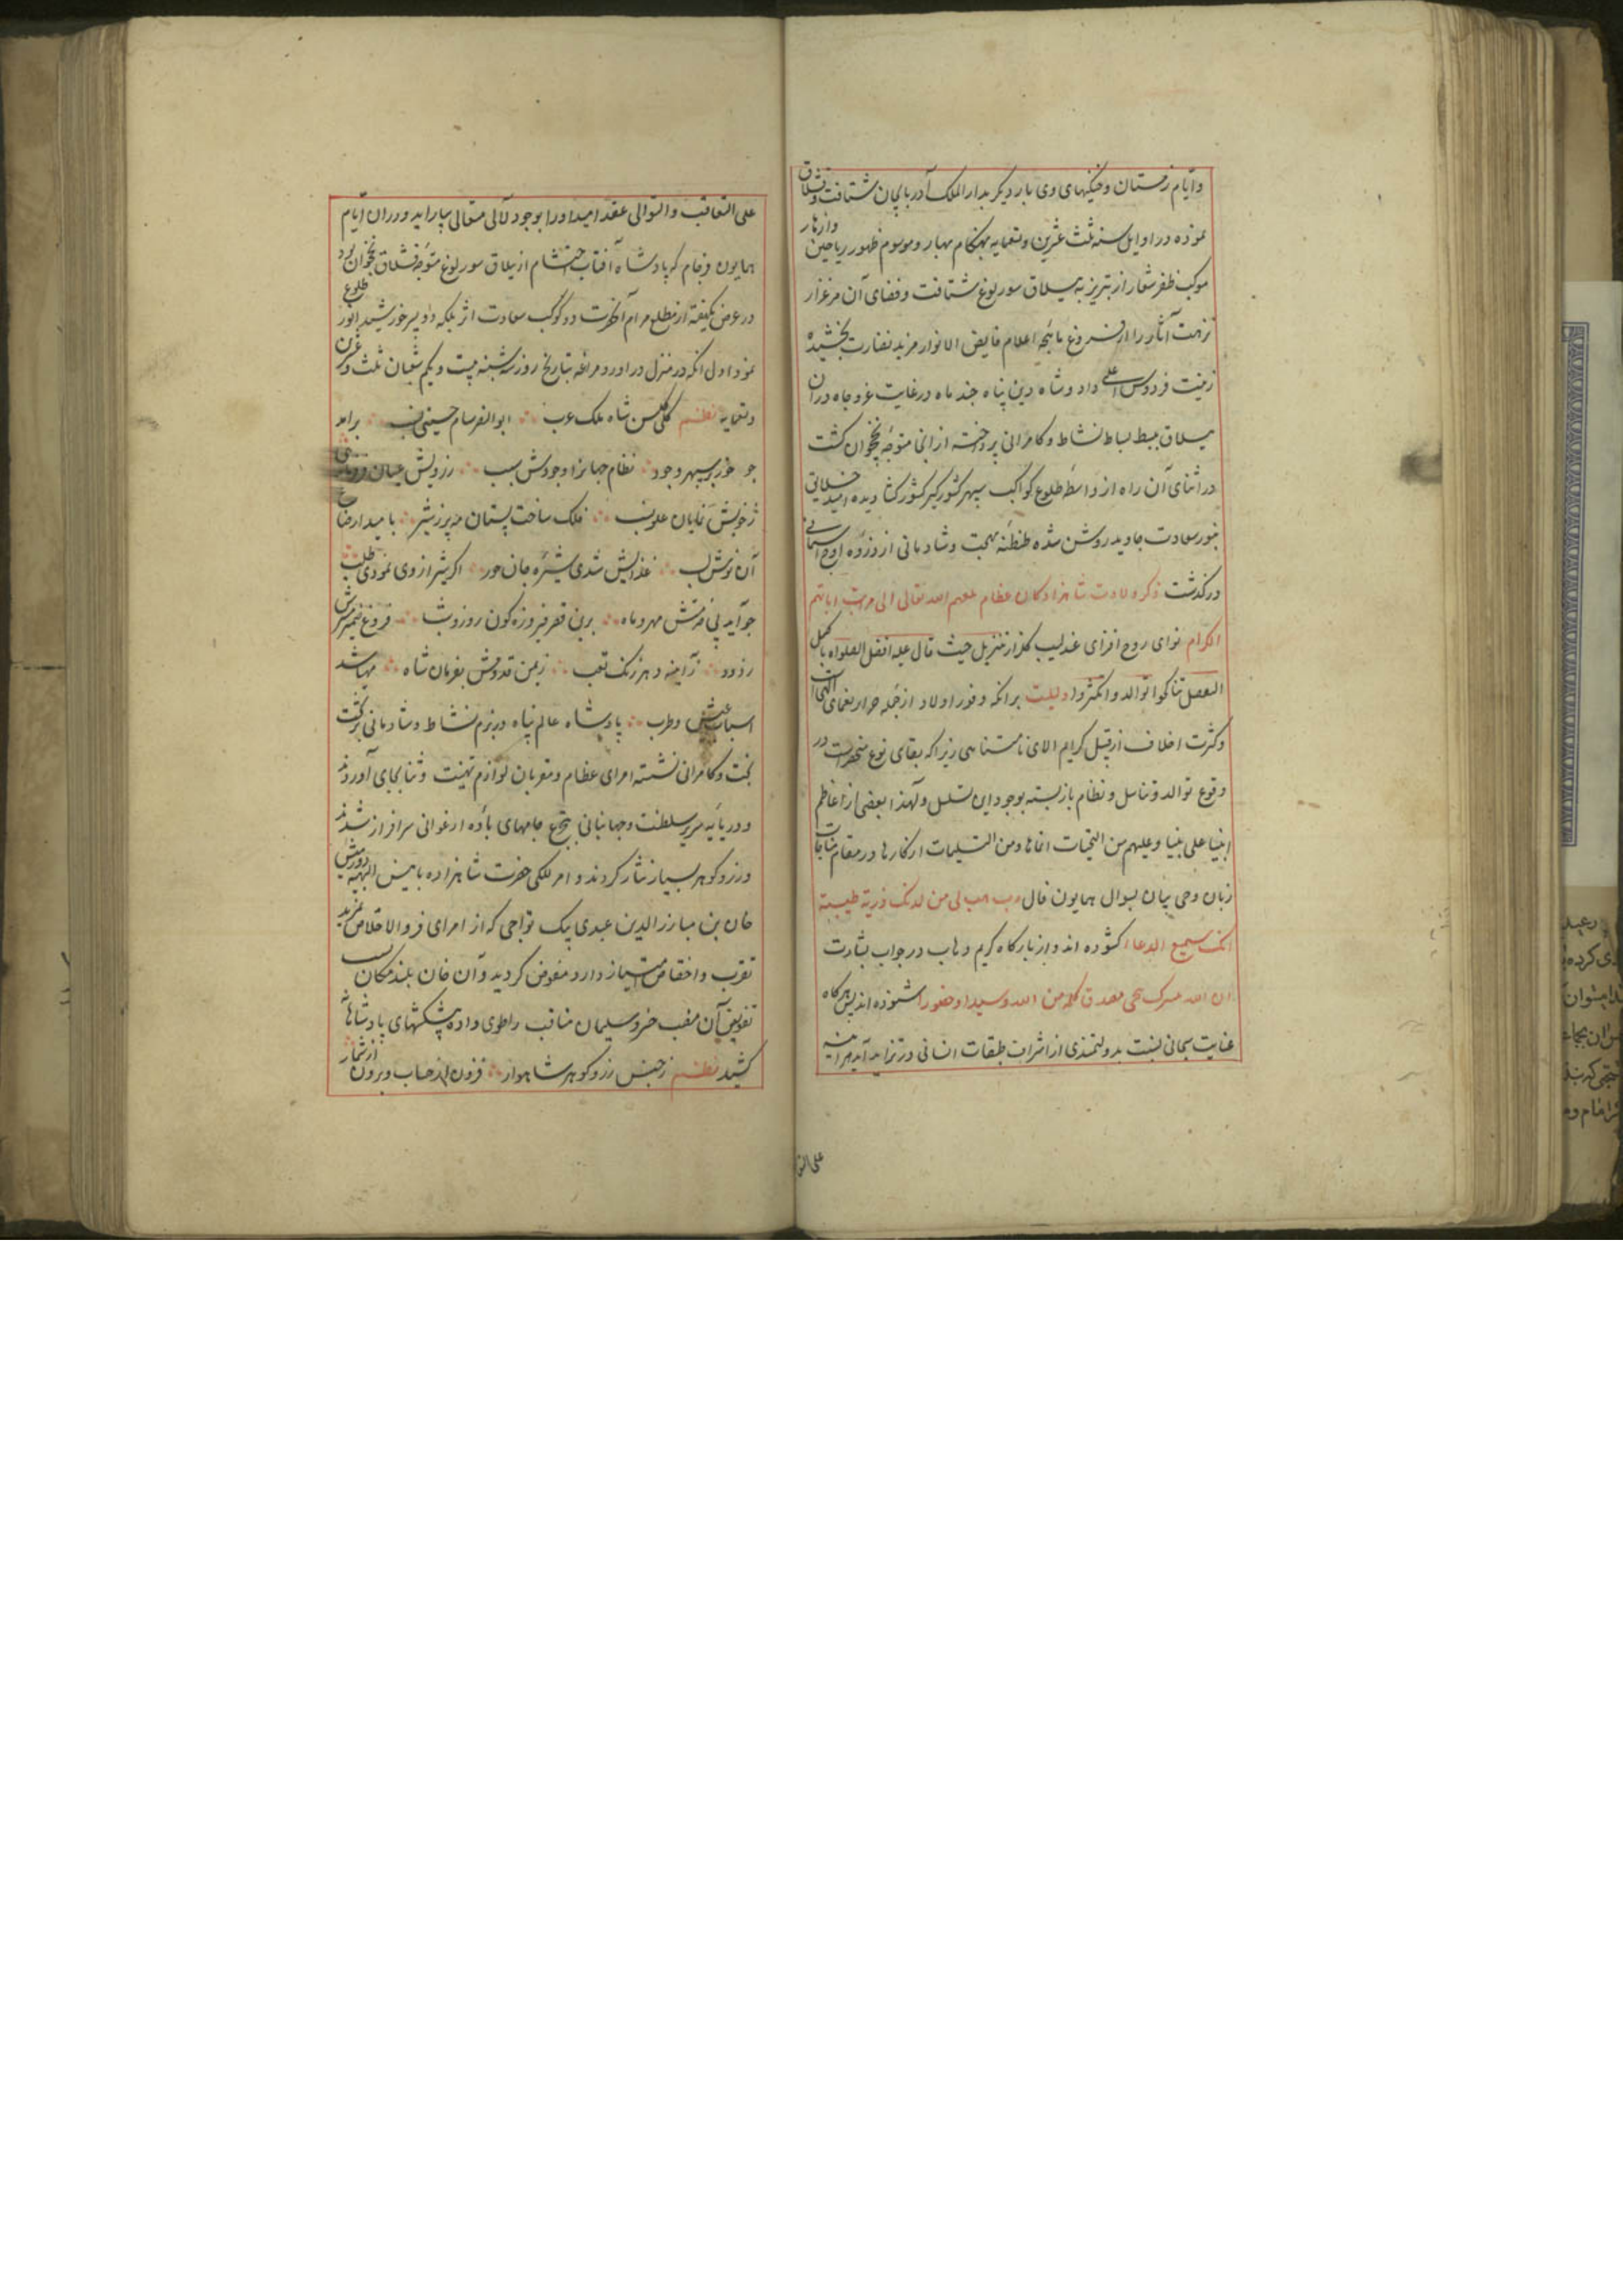 وایام زمستان و خنکیهای وی بار دیگر بدار الملک آذربایجان شتافت و قشلاق
نموده در اوایل سنه ثلث عشرین و تسعمایه بهنگام بهار و موسم ظهور ریاحین و ازهار
موکب ظفر شعار از تبریز به ییلاق سورلوغ شتافت و فضای آن مرغزار
نزهت آثار را از فروغ ماهچه اعلام فایض الانوار مزید نضارت بخشیده
زینت فردوس اعلی داد و شاه دین پناه چند ماه در غایت عز و جاه دران
ییلاق ببسط بساط نشاط و کامرانی پرداخته از انجا متوجه نخجوان گشت
در اثنای آن راه از واسطه طلوع کواکب سپهر کشورگیر کشورگشا دیده امید خلایق
بنور سعادت جاوید روشن شده طنطنه بهجت و شادمانی از ذروه اوج آسمانی
درگذشت ذکر ولادت شاهزادکان عظام بلغهم الله تعالی الی مراتب ابائهم
الکرام نوای روح افزای عندلیب گلزار تنزیل حیث قال علیه افضل الصلواة باکمل
التفضل تناکحوا توالدوا تکثروا دلیلست برانکه وفور اولاد از جمله نعمای
وکثرت اخلاف از قبیل کرایم الای نامتناهی زیرا که بقای نوع منحصرست در
وقوع توالد و تناسل و نظام باز بسته بوجود این تسلسل و لهذا بعضی از اعاظم
انبیا علی نبینا و علیهم من التحیات انماها و من التسلیمات ازکارها در مقام مناجات
زبان وحی بیان بسوال همایون فال رب هب لی من لدنک ذریة طیبة
انک سمیع الدعاء گشوده اند و از بارگاه کریم وهاب در جواب بشارت
ان الله یبشرک بیحیی مصدقا بکلمة من الله و سیدا و حصورا شنوده اند پس هرگاه
عنایت سبحانی نسبت بدولتمندی از اشراف طبقات انسانی در تزاید آید هر آینه
علی التعا
علی التعاقب والتوالی عقد امید او را بوجود لآلی متعالی بیاراید و دران ایام
همایون فرجام که پادشاه آفتاب احتشام از ییلاق سورلوغ متوجه قشلاق نخجوان بود
در عرض یکهفته از مطلع مرام آنحضرت دو کوکب سعادت اثر بلکه دو پیکر خورشید انور طلوع
نمود اول انکه در منزل در اورد مراغه بتاریخ روز سه شنبه بیست و یکم شعبان ثلث و عشرین
و تسعمایه نظم گل گلشن شاه ملک عرب ابو النصر سام حسینی نسب برامد
چو خور بر سپهر وجود نظام جهانرا وجودش سبب ز رویش عیان
ز خویش نمایان علو نسب فلک ساخت پستان مه پر ز شیر بامید ارضاع
آن نوش لب غذایش شدی شیره جان حور اگر شیر از وی نمودی طلب
چو آید پی خدمتش مهر و ماه برین قصر فیروزه گون روز و شب فروغ ضمیرش
زدود ز آیینه دهر زنگ تعب ز یمن قدومش بفرمان شاه مهیا شد
اسباب عیش و طرب پادشاه عالم پناه در بزم نشاط و شادمانی بر تخت
بخت و کامرانی نشسته امرای عظام و مقربان لوازم تهنیت و ثنا بجای آوردند
و در پایه سریر سلطنت و جهانبانی بتجرع جامهای باده ارغوانی سرافراز شدند
و زر و گوهر بسیار نثار کردند و امر للگی حضرت شاهزاده بامین الهیه دورمیش
خان بن مبارزالدین عبدی بیک تواجی که از امرای فر والا خلاص بمزید
تقرب و اختصاص امتیاز دارد مفوض گردید و آن خان بلند مکان
تفویض آن منصب خسرو سلیمان مناقب را طوی داده پیشکشهای پادشاهانه
کشید نظم ز جنس زر و گوهر شاهوار فزون از حساب و برون از شمار